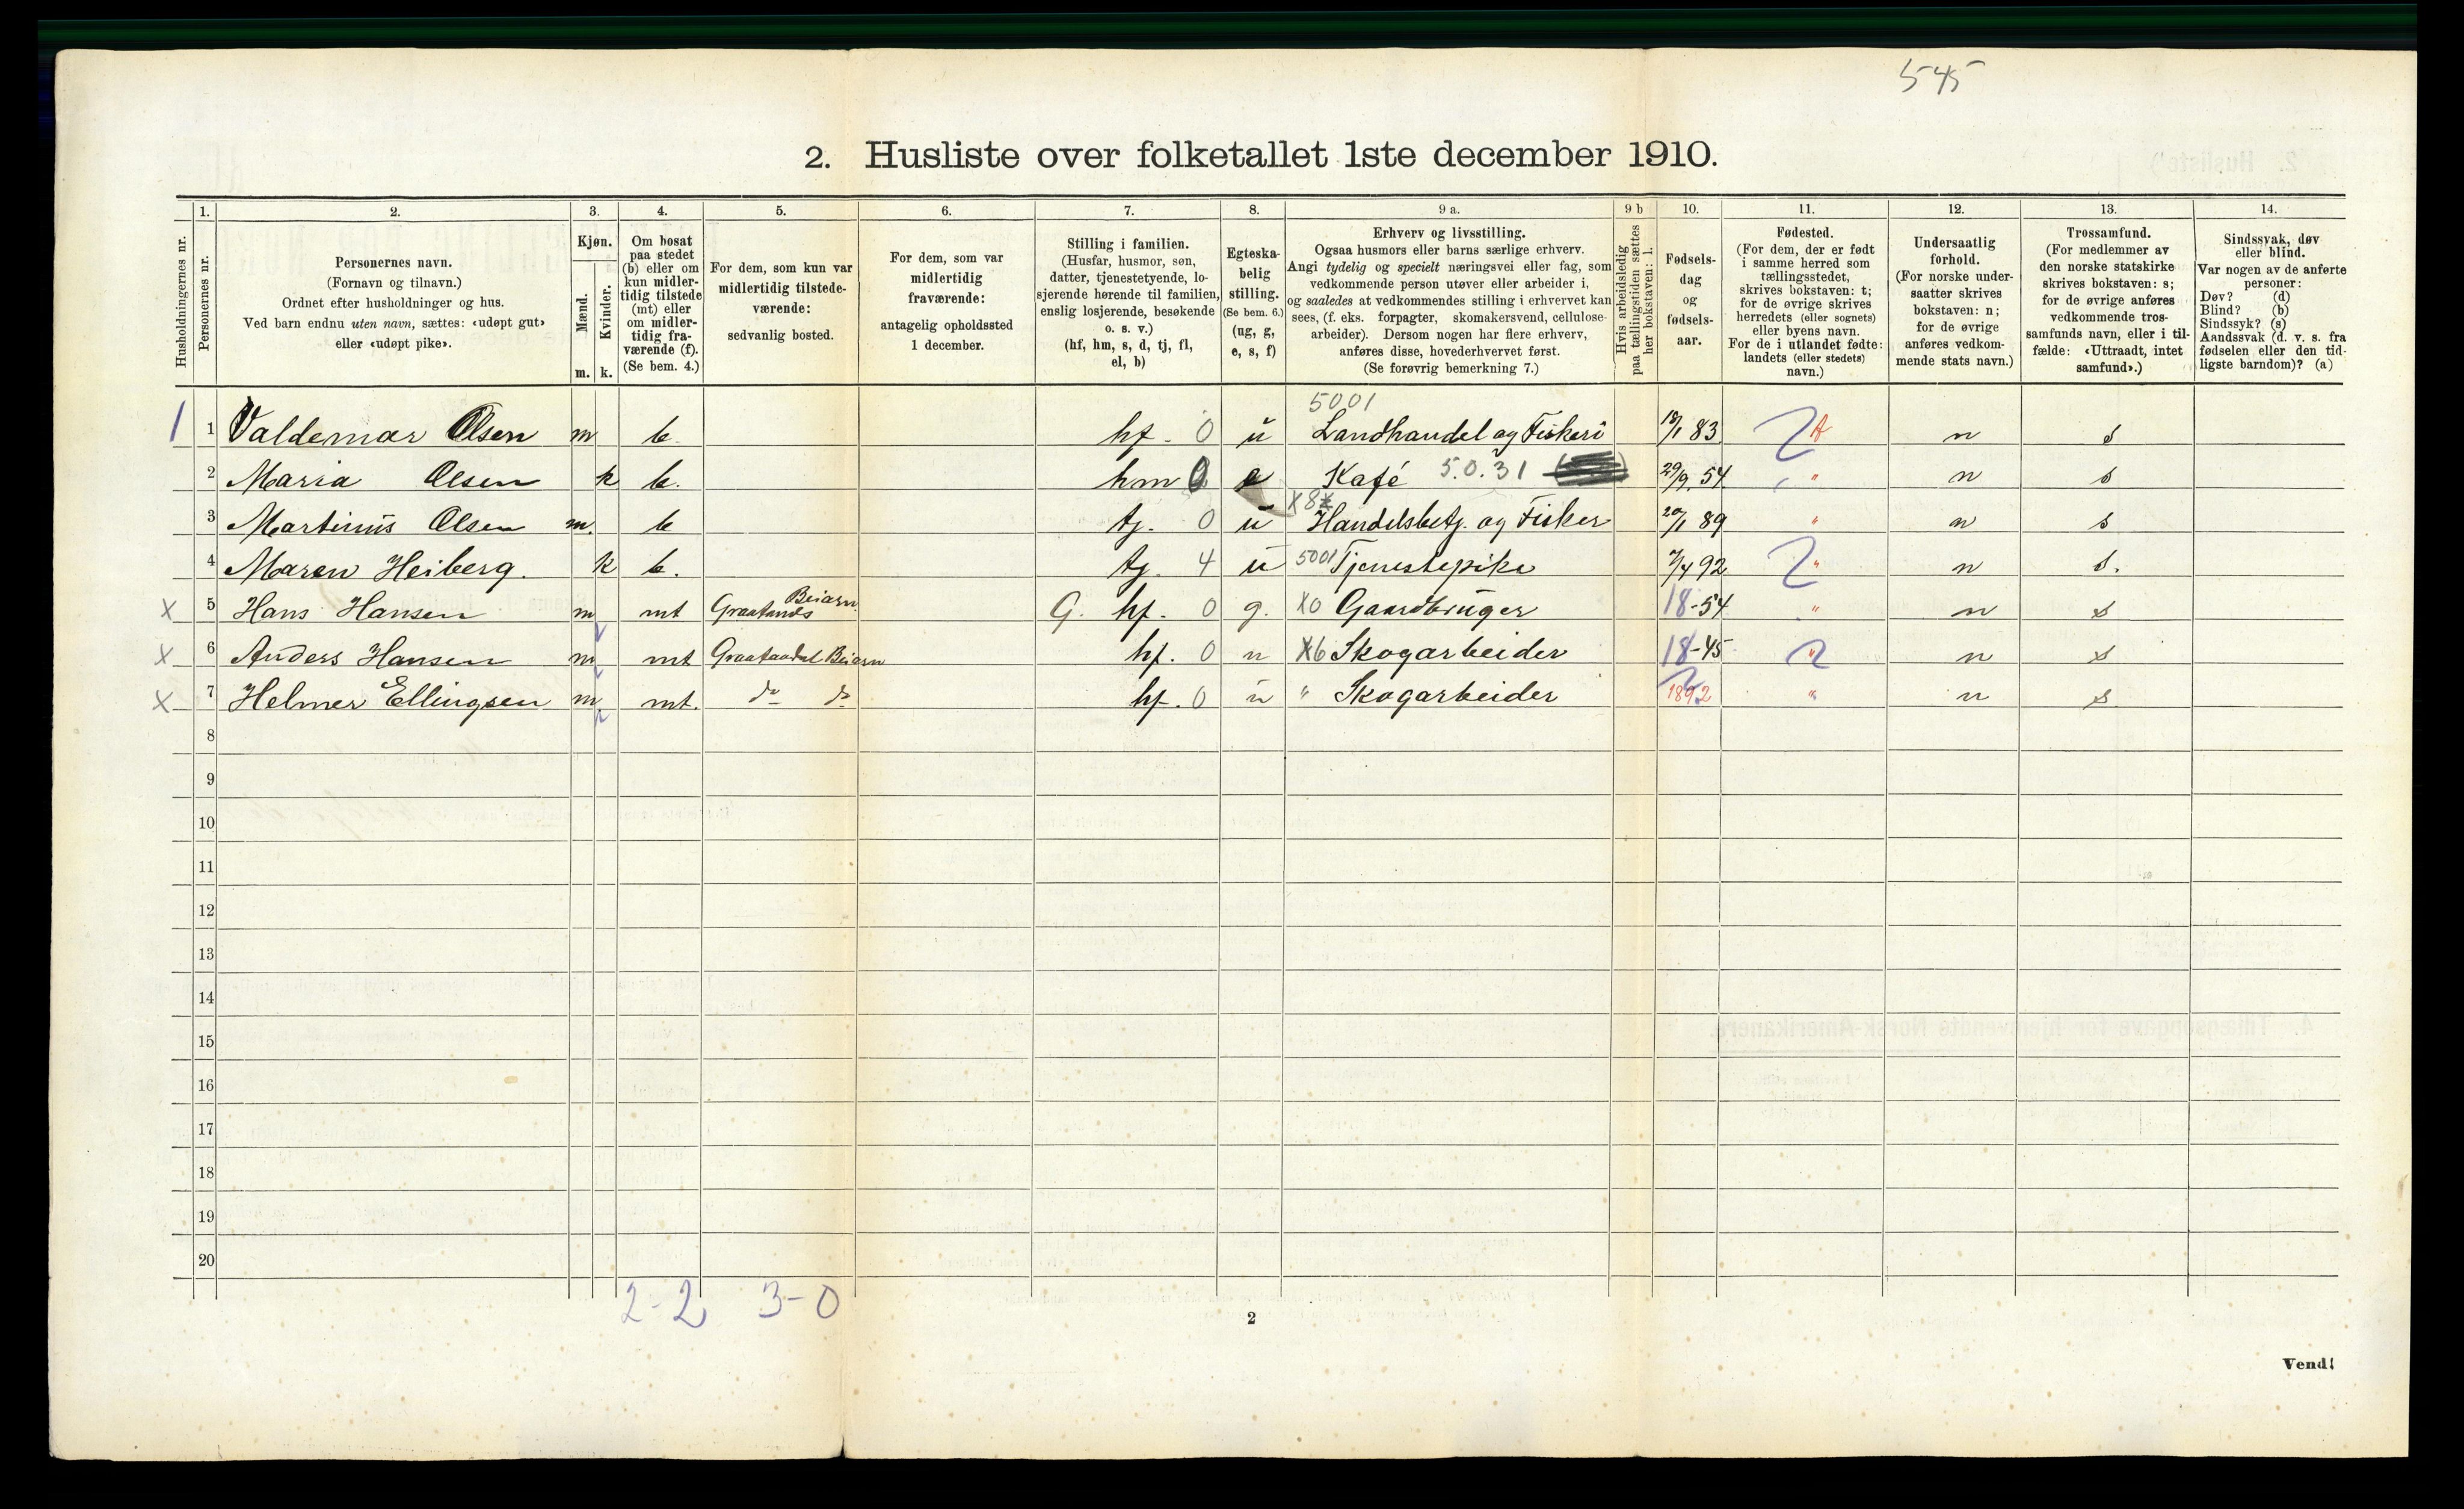 545
2. Husliste over folketallet 1ste december 1910.
1. 2. 3. 4. 5. 6. 7. 8. 9 a. 9 b 10. 11. 12. 13. 14.
Husholdningernes nr.
Personernes nr.
Personernes navn.
(Fornavn og tilnavn.)
Ordnet efter husholdninger og hus.
Ved barn endnu uten navn, sættes: «udøpt gut»
eller «udøpt pike».
Kjøn.
Mænd.
Kvinder.
m. k.
Om bosat
paa stedet
(b) eller om
kun midler-
tidig tilstede
(mt) eller
om midler-
tidig fra-
værende (f).
(Se bem. 4.)
For dem, som kun var
midlertidig tilstede-
værende:
sedvanlig bosted.
For dem, som var
midlertidig
fraværende:
antagelig opholdssted
1 december.
Stilling i familien.
(Husfar, husmor, søn,
datter, tjenestetyende, lo-
sjerende hørende til familien,
enslig losjerende, besøkende
o. s. v.)
(hf, hm, s, d, tj, fl,
el, b)
Egteska-
belig
stilling.
(Se bem. 6.)
(ug, g,
e, s, f)
Erhverv og livsstilling.
Ogsaa husmors eller barns særlige erhverv.
Angi tydelig og specielt næringsvei eller fag, som
vedkommende person utøver eller arbeider i,
og saaledes at vedkommendes stilling i erhvervet kan
sees, (f. eks. forpagter, skomakersvend, cellulose-
arbeider). Dersom nogen har flere erhverv,
anføres disse, hovederhvervet først.
(Se forøvrig bemerkning 7.)
Hvis arbeidsledig
paa tællingstiden sættes
her bokstaven: l.
Fødsels-
dag
og
fødsels-
aar.
Fødested.
(For dem, der er født
i samme herred som
tællingsstedet,
skrives bokstaven: t;
for de øvrige skrives
herredets (eller sognets)
eller byens navn.
For de i utlandet fødte:
landets (eller stedets)
navn.)
Undersaatlig
forhold.
(For norske under-
saatter skrives
bokstaven: n;
for de øvrige
anføres vedkom-
mende stats navn.)
Trossamfund.
(For medlemmer av
den norske statskirke
skrives bokstaven: s;
for de øvrige anføres
vedkommende tros-
samfunds navn, eller i til-
fælde: «Uttraadt, intet
samfund».)
Sindssvak, døv
eller blind.
Var nogen av de anførte
personer:
Døv? (d)
Blind? (b)
Sindssyk? (s)
Aandssvak (d. v. s. fra
fødselen eller den tid-
ligste barndom)? (a)
5001
1 1 Valdemar Olsen m b hf. 0 u Landhandel og Fiskeri 18/1 83 t n s
2 Maria Olsen k b. hm 0 e Kafé 5.0.31 29/9. 54 " n s
3 Martinus Olsen m. b tj. 0 u X8 Handelsbetj. og Fisker 20/1 89 " n s
4 Maren Heiberg. k b. tj. 4 u 5001 Tjenestepike 7/4 92 " n s.
Beiarn
X 5 Hans Hansen m mt G. hf. 0 g. X0 Gaardbruger 18-54 " n s
X 6 Anders Hansen m mt Beiarn hf. 0 u X6 Skogarbeider 18-45 " n s
X 7 Helmer Ellingsen m. mt. do do hf. 0 u " Skogarbeider 1892 " n s
8
9
10
11
12
13
14
15
16
17
18
19
20
2-2 3-0
2
Vend!